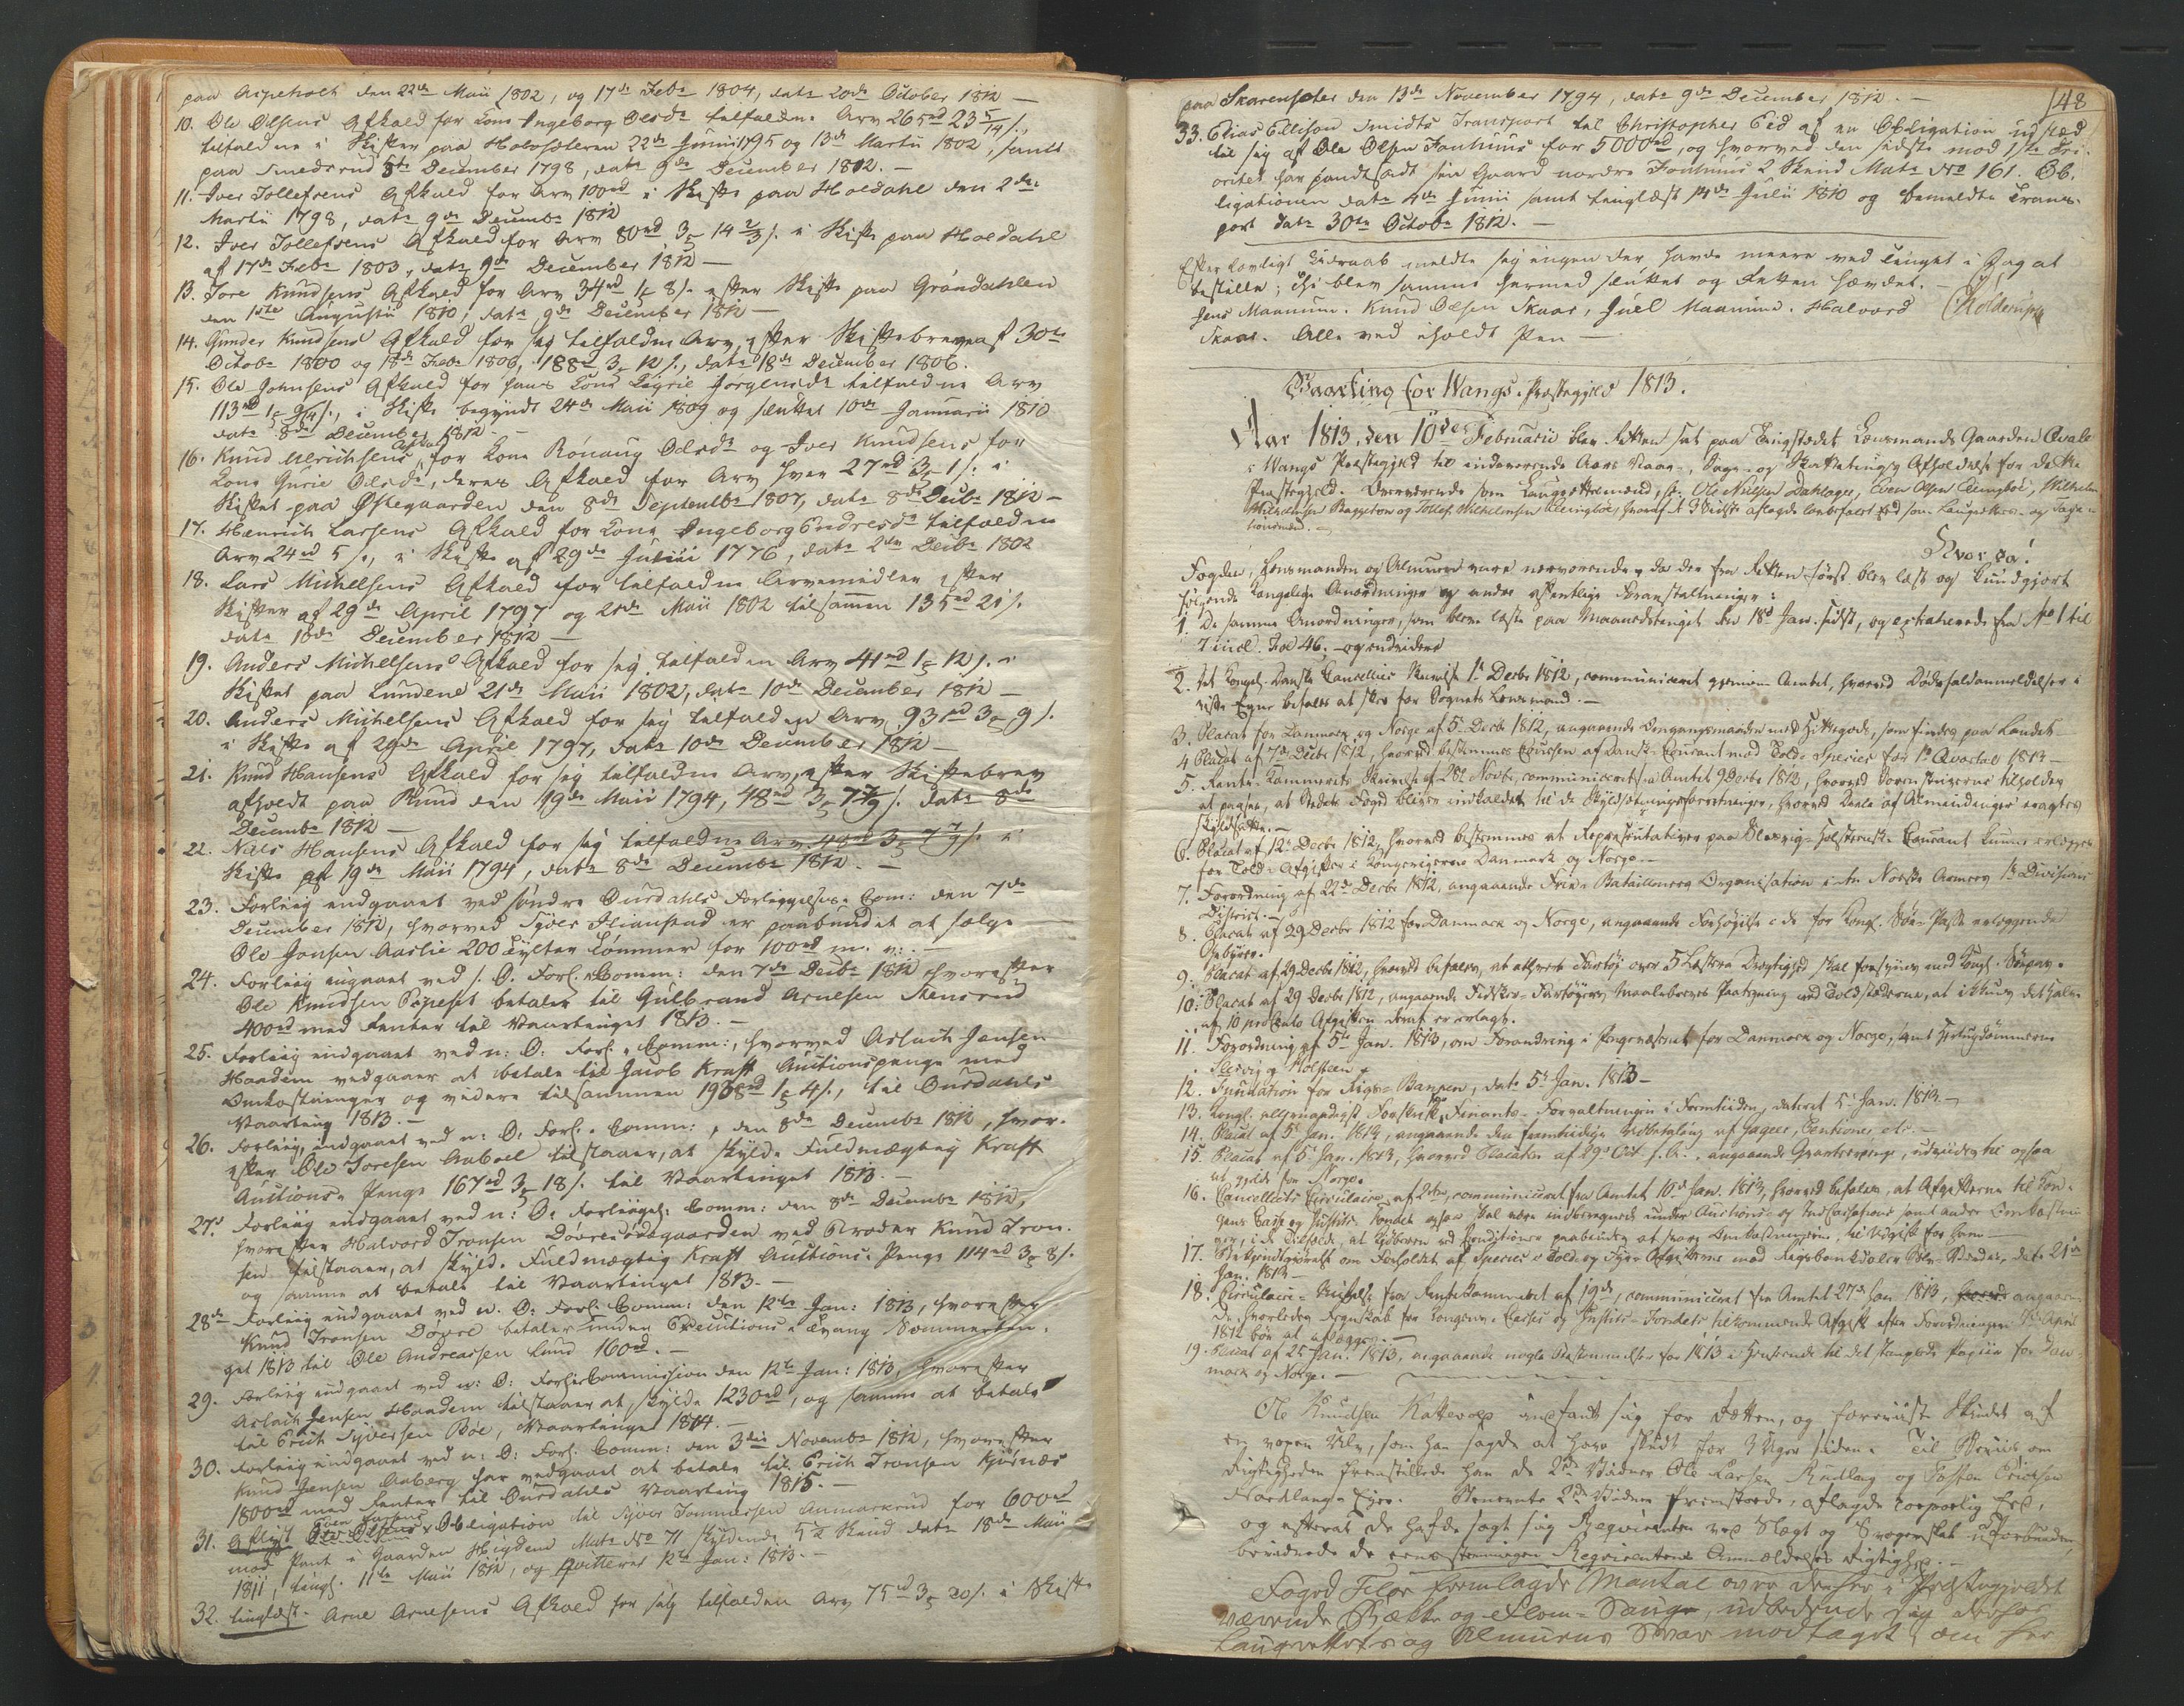 paa Aspeholt den 22de Maii 1802, og 17de Febr 1804, datr 20de October 1812 —
10. Ole Olsens Afkald for Kone Ingeborg Olsdr tilfaldne Arv 265rd 23 5/14 s.,
tilfaldne i Skifter paa Holvsleren 22de Junii 1795 og 13de Martii 1802, samt
paa Smedsrud 5te December 1798, datr 9de December 1812. —
11. Iver Tollefsens Afkald for Arv 100rd i Skifte paa Holdahl den 2de
Martii 1798, datr 9de Decembr 1812
12. Iver Tollefsens Afkald for Arv 80rd 3 14 2/3 s. i Skifte paa Holdahl
af 17de Febr 1803, datr 9de December 1812 —
13. Tore Knudsens Afkald for Arv 34rd 1 8 s. efter Skifte paa Gröndahlen
den 1ste Augustii 1810, datr 9de December 1812 —
14. Gunder Knudsens Afkald for sig tilfalden Arv, efter Skiftebreve af 30te
Octobr 1800 og 18de Febr 1806, 188rd 3 12 s., datr 18de December 1806.
15. Ole Johnsens Afkald for hans Kone Sigrie Jörgensdr tilfaldne Arv
113rd 1 s., i Skifte begyndt 24de Maii 1809 og sluttet 10de Januarii 1810
datr 8de December 1812 —
16. Knud Ulrichsens Afkald for Kone Rönnaug Olsdr og Iver Knudsens for
Kone Gurie Olsdr, deres Afkald for Arv hver 27rd 3 1 s. i
Skiftet paa Östegaarden den 8de Septembr 1807, datr 8de Decbr 1812 —
17. Henrich Larsens Afkald for Kone Ingeborg Endresdr tilfalden
Arv 24rd 5 s., i Skifte af 29de Junii 1776, datr 2den Decbr 1802
18. Lars Michelsens Afkald for tilfaldne Arvemidler efter
Skifter af 29de April 1797 og 21de Maii 1802 tilsammen 135rd 21 s.
datr 10de December 1812 —
19. Anders Michelsens Afkald for sig tilfalden Arv 41rd 1 12 s. i
Skiftet paa Lundene 21de Maii 1802, datr 10de December 1812 —
20. Anders Michelsens Afkald for sig tilfalden Arv 93rd 3 9 s.
i Skifte af 29de April 1797, datr 10de December 1812 —
21. Knud Hansens Afkald for sig tilfalden Arv, efter Skiftebrev
afholdt paa Rund den 19de Maii 1794, 48rd 3 7 7/9 s. datr 8de
Decembr 1812 —
22. Niels Hansens Afkald for sig tilfaldne Arv 48rd 3 7 7/9 s. i
Skifte af 19de Maii 1794, datr 8de Decembr 1812. —
23. Forliig indgaaet ved söndre Ourdahls Forligelses Com: den 7de
December 1812, hvorved Syver Iliansstad er paabundet at sælge
Ole Jonsen Aaslie 200 Tylter Tömmer for 100rd m. v: —
24. Forliig indgaaet ved s. O. Forl. Comm: den 7de Decbr 1812 hvorefter
Ole Knudsen betaler til Gulbrand Arnesen Stensrud
400rd med Renter til Vaartinget 1813. —
25. Forliig indgaaet ved n: O: Forl. Comm:, hvorved Aslach Jensen
Haadem vedgaaer at betale til Jacob Krafft Auctionspenge med
Omkostninger og videre tilsammen 1938rd 1 4 s., til Ourdahls
Vaarting 1813. —
26. Forliig, indgaaet ved n: O: Forl. Comm:, den 8de Decembr 1812, hvor-
efter Ole Toresen Aaboel tilstaaer, at skylde Fuldmægtig Krafft
Auctions Penge 167rd 3 18 s. til Vaartinget 1813. —
27. Forliig indgaaet ved n: O: Forliigel: Comm: den 8de Decembr 1812,
hvorefter Halvord Tronsen Dövre ved Broder Knud Tron-
sen tilstaaer, at skylde Fuldmægtig Krafft Auctions Penge 114rd 3 8 s.
og samme at betale til Vaartinget 1813. —
28de Forliig indgaaet ved n. O: Forl: Comm: den 12te Jan: 1813, hvorefter
Knud Tronsen Döwre betaler under Executions Tvang Sommertin-
get 1813 til Ole Andreassen Lund 160rd. —
29. Forliig indgaaet ved n: O: Forl: Commission den 12te Jan: 1813, hvorefter
Aslach Jensen Haadem tilstaaer at skylde 1230rd, og samme at betale
til Erich Syversen Böe, Vaartinget 1814. —
30. Forliig indgaaet ved n: O: Forl: Comm: den 3die Novembr 1812, hvorefter
Knud Jensen Aaberg har vedgaaet at betale til Erich Tronsen Kjösnæs
1800rd med Renter til Ourdahls Vaarting 1815. —
31. Aflyst Obligation til Syver Tommesen Anmarkrud for 600rd
mod Pant i Gaarden Heigden Matr No 71 skyldende 1/2 Skind datr 18de Maii
1811, tingl: 11te Maii 1812, og qvitteret 12te Jan: 1813. —
32. tinglæst. Arne Arnesens Afkald for sig tilfalden Arv 75rd 3 20 s. i Skifte
148
paa Skarenseter den 13de November 1794, datr 9de December 1812. —
33. Elias Ellison Smidts Transport til Christopher Eid af en Obligation udsted
til sig af Ole Olsen Fonhuus for 5000rd, og hvorved den sidste mod 1ste Pri-
oritet har pantsadt sin Gaard nordre Fonhuus 2 Skind Matr No 161. Ob-
ligationen datr 4de Junii samt tinglæst 14de Julii 1810 og bemeldte Trans-
port datr 30te Octobr 1812. —
Efter lovligt Udraab meldte sig ingen der havde meere ved Tinget i Dag at
bestille; thi blev samme hermed sluttet og Retten hævdet. —
Jens Maanum. Knud Olsen Skaar, Juel Maanum. Halvord Rolderup
Skaar. Alle ved iholdt Pen —
Vaarting for Wangs Præstegjeld 1813.
Aar 1813, den 10de Februarii blev Retten sat paa Tingstedet Lensmands Gaarden Qvale
i Wangs Præstegjeld til indeværende Aars Vaar-, Sage- og Skattetings Afholdelse for dette
Præstegjeld. Overværende som Laugrettesmænd, sc: Ole Nielsen Dahlager, Even Olsen Kleingboe, Wilhelm
Wilhelmsen Baggetun og Tollef Wilhelmsen Kleingboe, hvoraf de 3 sidste aflagde lovbefalet Eed som Laugrettes- og Taxa-
tionsmænd. —
Hvorda!
Fogden, Lensmanden og Almuen vare nærværende, da der fra Retten först blev læst og kundgjort
fölgende kongelige Anordninger og andre offentlige Foranstaltninger:
1. De samme Anordninger, som bleve læste paa Maanedstinget den 18de Jan. sidst, og extraherede fra No 1 til
7 incl. Fol 46. — og endvidere
2. Det Kongel. Danske Cancellies Skrivelse 1ste Decbr 1812, communiceret gjennem Amtet, hvorved Dödsfaldanmeldelser i
visse Egne befales at skee for Sognets Lensmand. —
3. Placat for Danmark og Norge af 5te Decbr 1812, angaaende Omgangsmaaden med Hittegods, som findes paa Landet —
4 Placat af 7de Decbr 1812, hvorved bestemmes Coursen af dansk Courant mod Told-Species for 1ste Qvartal 1813 —
5. Rente-Kammerets Skrivelse af 28de Novbr, communiceret fra Amtet 9 Decbr 1812, hvorved Sorenskriverne tilholdes
at paasee, at Stedets Foged bliver indkaldet til de Skyldsætningsforretninger, hvorved Deele af Almindinger vorder
skyldsatte. —
6. Placat af 12te Decbr 1812, hvorved bestemmes at Repræsentativer paa Slesvig-Holsteensk Courant kunne erlægges
for Told-Afgifter i Kongerigerne Danmark og Norge —
7. Forordning af 22de Decbr 1812, angaaende Frie-Batailloners Organisation i den Norske Armees 1ste Divisions
District. —
8. Placat af 29 Decbr 1812 for Danmark og Norge, angaaende Forhöielse i de for Kongl. Söe-Passe erlæggende
Gebyrer.
9. Placat af 29 Decbr 1812, hvorved befales, at ethvert Fartöj over 5 Læsters Drægtighed skal forsynes med Kongl. Söepas.
10. Placat af 29 Decbr 1812, angaaende Fidsker-Fartöyers Maalebreves Paategning ved Toldstæderne, at ikkun det halve
af 10 proCento Afgiften deraf er erlagt.
11. Forordning af 5te Jan. 1813, om Forandring i Pengevæsenet for Danmark og Norge, samt Hertugdömmerne
Slesvig og Holsteen
12. Fundation for Rigs-Banken, datr 5te Jan. 1813 —
13. Kongl. allernaadigst Forskrift for Finants-Forvaltningen i Fremtiden, dateret 5 Jan. 1813. —
14. Placat af 5te Jan. 1813, angaaende den fremtidige Udbetaling af Gager, Pensioner, etc. —
15. Placat af 5 Jan. 1813, hvorved Placaten af 29de Oct. f. A., angaaende Qvarteerpenge, udvides til ogsaa
at gjelde for Norge.
16. Cancelliets Circulaire af 2den, communiceret fra Amtet 10de Jan. 1813, hvorved befales, at Afgifterne til Kon-
gens Casse og Justits Fondet ogsaa skal være indberegnede under Auctions- og Incassations samt andre Omkostnin-
ger, i de Tilfælde, at Kjöberen ved Conditioner paabydes at svare Omkostningerne, til Udgift for ham —
17. Bekjendtgjörelse om Forholdet af Species i Told og Fyr Afgifterne mod Rigsbankdaler Sölv-Værdie, datr 21de
Jan. 1813 —
18. Circulaire-Skrivelse fra Rentekammeret af 19de, communiceret fra Amtet 27de Jan 1813, angaaen-
de, hvorledes Regnskab for Kongens Casses og Justits-Fondets tilkommende Afgift efter Forordningen 8de April
1812 bör at aflægges. —
19. Placat af 25 Jan. 1813, angaaende nogle Bestemmelser for 1813 i Henseende til det stemplede Papiir for Dan-
mark og Norge. —
Ole Knudsen Kattevold indfandt sig for Retten, og foreviiste Skindet af
en voxen Ulv, som han sagde at have skudt for 3 Uger siden. Til Beviis om
Rigtigheden fremstillede han de 2de Vidner Ole Larsen Rudlang og Tosten Erichsen
Nordlang Eyer. Benevnte 2de Vidner fremstoede, aflagde corporlig Eed,
og efterat de havde sagt sig Reqvirenten ved Slægt og Svogerskab uforbunden,
bevidnede de eenstemmigen Reqvirentens Anmældelses Rigtighed. —
Foged Flor fremlagde Mantal over denher i Præstegjeldet
værende Bække og Flom-Sauge, udbedende sig derfor
Laugrettets og Almuens Svar modtaget, om her